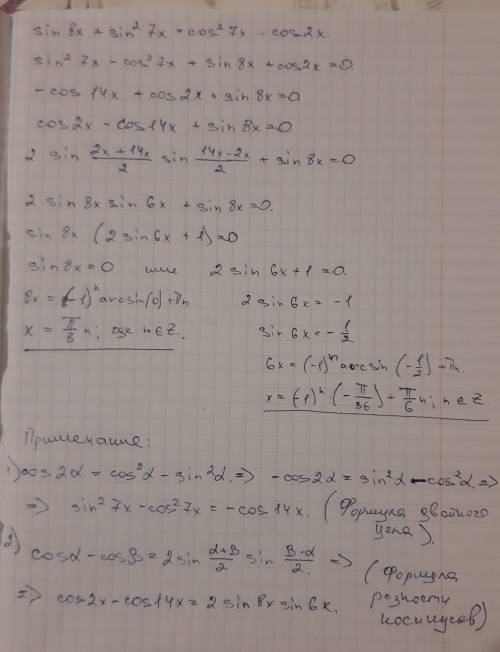 sin 8x + sin² 7x = cos² 7x - cos 2x.
sin² 7x - cos² 7x + sin 8x + cos 2x = 0.
- cos 14x + cos 2x + sin 8x = 0
cos 2x - cos 14x + sin 8x = 0
2 sin (2x + 14x)/2 sin (14x - 2x)/2 + sin 8x = 0
2 sin 8x sin 6x + sin 8x = 0.
sin 8x (2 sin 6x + 1) = 0
sin 8x = 0 или 2 sin 6x + 1 = 0.
8x = (-1)ⁿ arcsin(0) + πn 2 sin 6x = -1
x = π/8 n; где n ∈ Z. sin 6x = - 1/2
6x = (-1)ⁿ arcsin (-1/2) + πn.
x = (-1)ⁿ · (-π/36) + π/6 n; n ∈ Z.
Примечание:
1) cos 2α = cos² α - sin² α. => - cos 2α = sin² α - cos² α. =>
=> sin² 7x - cos² 7x = - cos 14x. (Формула двойного
угла).
2) cos α - cos β = 2 sin (α+β)/2 sin (β-α)/2. => (Формула
=> cos 2x - cos 14x = 2 sin 8x sin 6x. разности
косинусов)